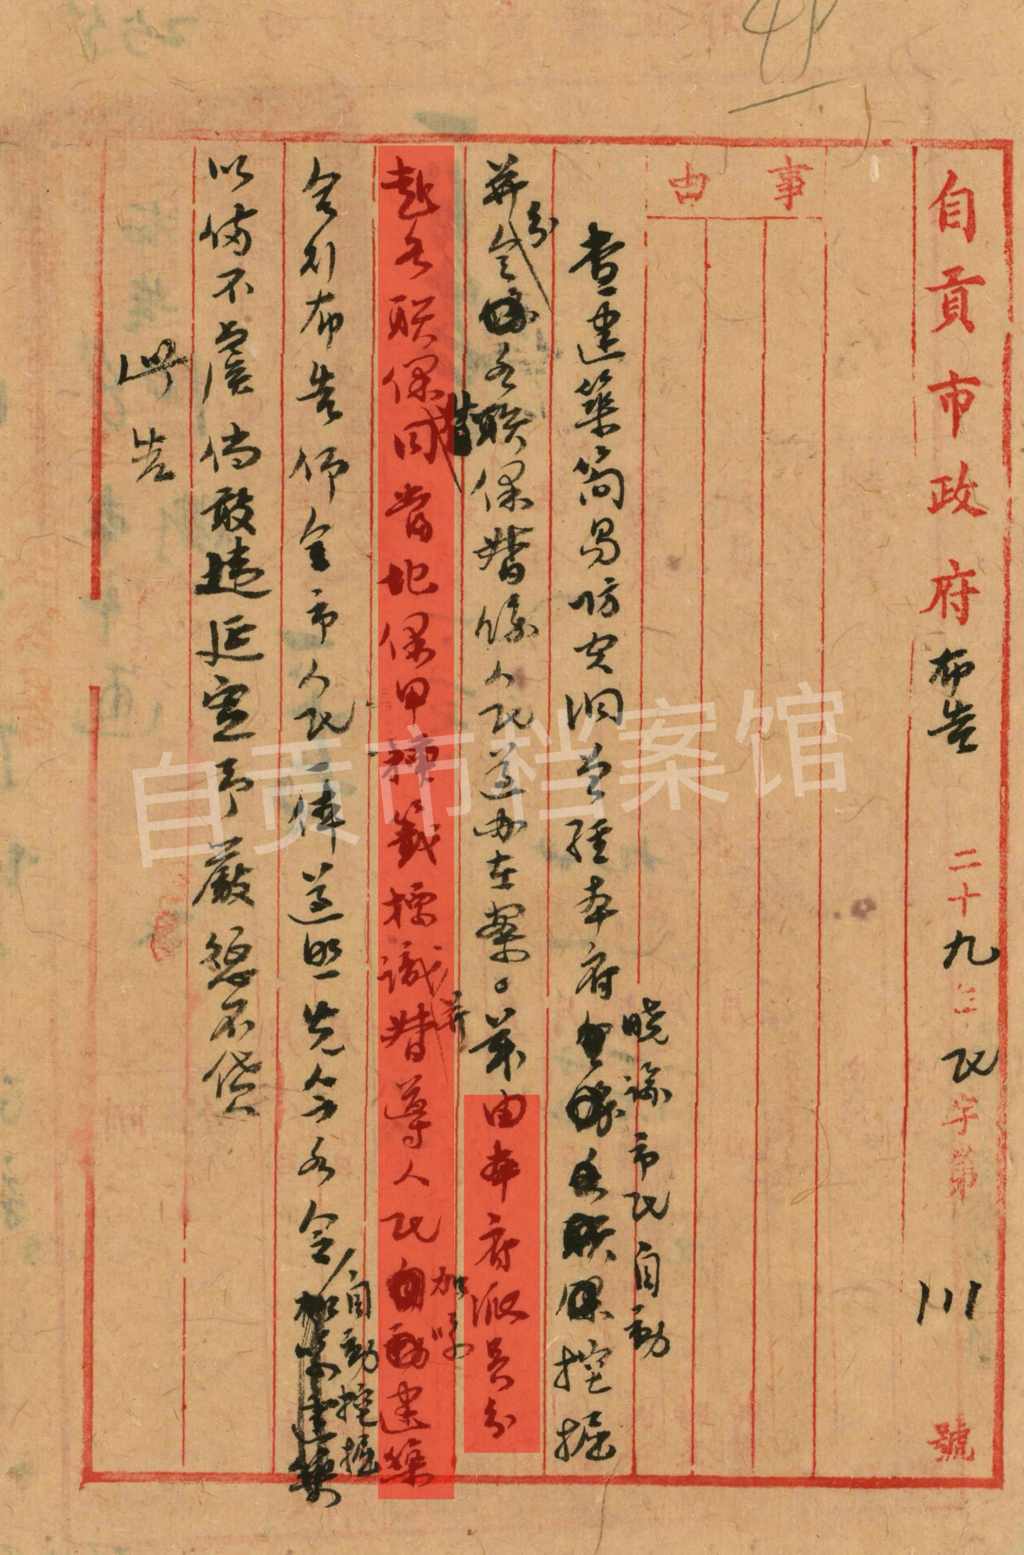 自貢市政府布告 二十九年民字第 川 號
事由
查建築簡易防空洞曾經本府曉諭市民自動挖掘
并分令各聯保督係人民遵办在案。茲由本府派員分
赴各聯保同當地保甲插籤標識并督導人民加緊建築
合引布告仰全市人民一体遵照先令各令自動挖掘
以備不虞倘敢違延定予嚴懲不貸
此告
自贡市档案馆